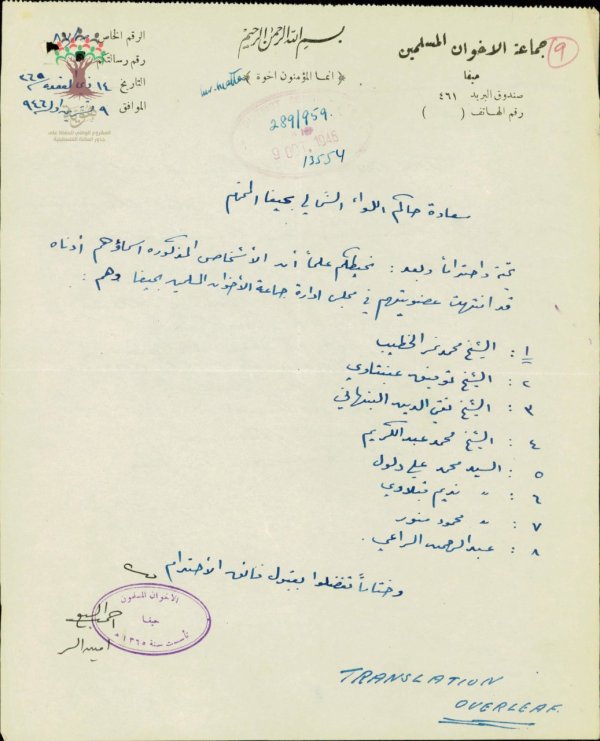 بسم الله الرحمن الرحيم
﴿ انما المؤمنون اخوة ﴾
جماعة الاخوان المسلمين
حيفا
صندوق البريد ٤٦١
رقم الهاتف ( )
9
الرقم الخاص
رقم رسالتكم
التاريخ ١٤ ذي القعدة
الموافق ٩
المشروع الوطني للحفاظ على
جذور العائلة الفلسطينية
289/959.
9 OCT 1946
13554
سعادة حاكم اللواء الشمالي بحيفا
تحية واحتراماً وبعد : نحيطكم علماً أن الأشخاص المذكورة اسماؤهم أدناه
قد انتهت عضويتهم في مجلس ادارة جماعة الأخوان المسلمين بحيفا وهم :
١ : الشيخ محمد نمر الخطيب
٢ : الشيخ توفيق عنبتاوي
٣ : الشيخ تقي الدين النبهاني
٤ : الشيخ محمد عبد الكريم
٥ : السيد محمد علي دلول
٦ : " نديم قبلاوي
٧ : " محمود منور
٨ : عبد الرحمن الراعي .
وختاماً تفضلوا بقبول فائق الأحترام
الاخوان المسلمون
حيفا
تأسست سنة ١٣٦٥ هـ
أمين السر
TRANSLATION
OVERLEAF.